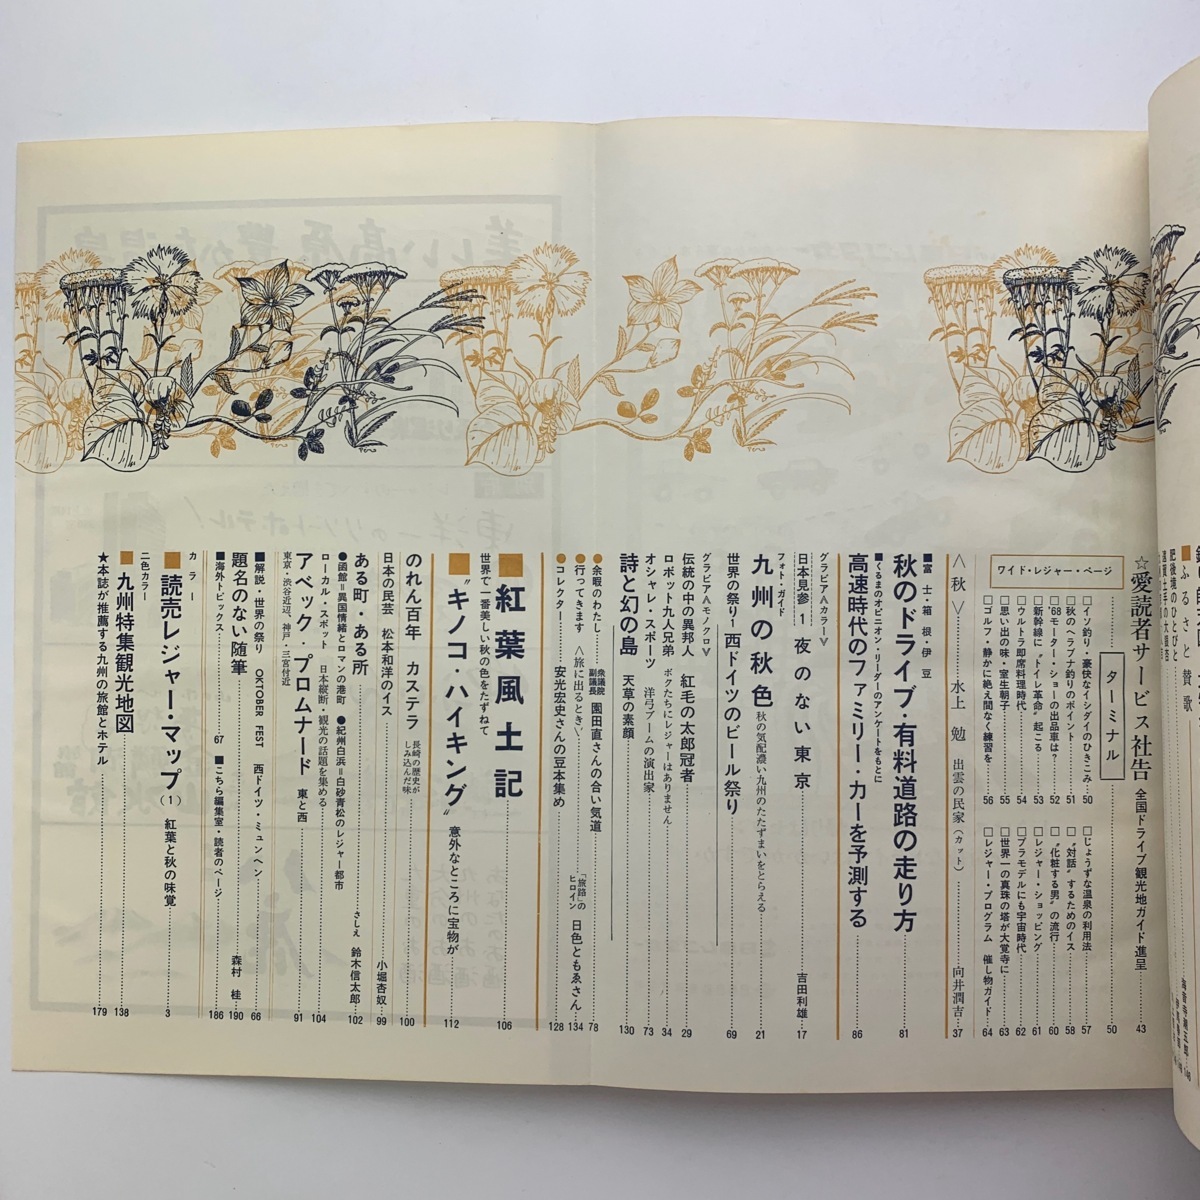 ふるさと賛歌
☆愛読者サービス社告 全国ドライブ観光地ガイド進呈 43
ワイド・レジャー・ページ
ターミナル 50
□イソ釣り・豪快なイシダイのひきこみ 50
□秋のヘラブナ釣りのポイント 51
□'68モーター・ショーの出品車は? 52
□新幹線に〝トイレ革命〟起こる 53
□ウルトラ即席料理時代 54
□思い出の味・室生朝子 55
□ゴルフ・静かに絶え間なく練習を 56
□じょうずな温泉の利用法 57
□〝対話〟するためのイス 58
□〝化粧する男〟の流行 60
□レジャー・ショッピング 61
□プラモデルにも宇宙時代 62
□世界一の真珠の塔が大覚寺に 63
□レジャー・プログラム 催し物ガイド 64
〈秋〉 水上 勉 出雲の民家(カット) 向井潤吉 37
■富士・箱根・伊豆
秋のドライブ・有料道路の走り方 81
■くるまのオピニオン・リーダーのアンケートをもとに
高速時代のファミリー・カーを予測する 86
グラビア《カラー》
日本見参1 夜のない東京 吉田利雄 17
フォト・ガイド
九州の秋色 秋の気配濃い九州のたたずまいをとらえる 21
世界の祭り1 西ドイツのビール祭り 69
グラビア《モノクロ》
伝統の中の異邦人 紅毛の太郎冠者 29
ロボット九人兄弟 ボクたちにレジャーはありません 34
オシャレ・スポーツ 洋弓ブームの演出家 73
詩と幻の島 天草の素顔 130
●余暇のわたし 衆議院副議長 園田直さんの合い気道 78
●行ってきます 〈旅に出るとき〉 「旅路」のヒロイン 日色ともゑさん 134
●コレクター 安光宏史さんの豆本集め 128
■紅葉風土記 106
世界で一番美しい秋の色をたずねて
■〝キノコ・ハイキング〟 意外なところに宝物が 112
のれん百年 カステラ 長崎の歴史がしみ込んだ味 100
日本の民芸 松本和洋のイス 小堀杏奴 99
ある町・ある所 さしえ 鈴木信太郎 102
●函館=異国情緒とロマンの港町 ●紀州白浜=白砂青松のレジャー都市
ローカル・スポット 日本縦断・観光の話題を集める 104
アベック・プロムナード 東と西 91
東京・渋谷近辺、神戸・三宮付近
■解説・世界の祭り OKTOBER FEST 西ドイツ・ミュンヘン 66
題名のない随筆 森村 桂 190
■海外トピックス 67 ■こちら編集室・読者のページ 186
カラー
■読売レジャー・マップ(1) 紅葉と秋の味覚 3
二色カラー
■九州特集観光地図 138
★本誌が推薦する九州の旅館とホテル 179